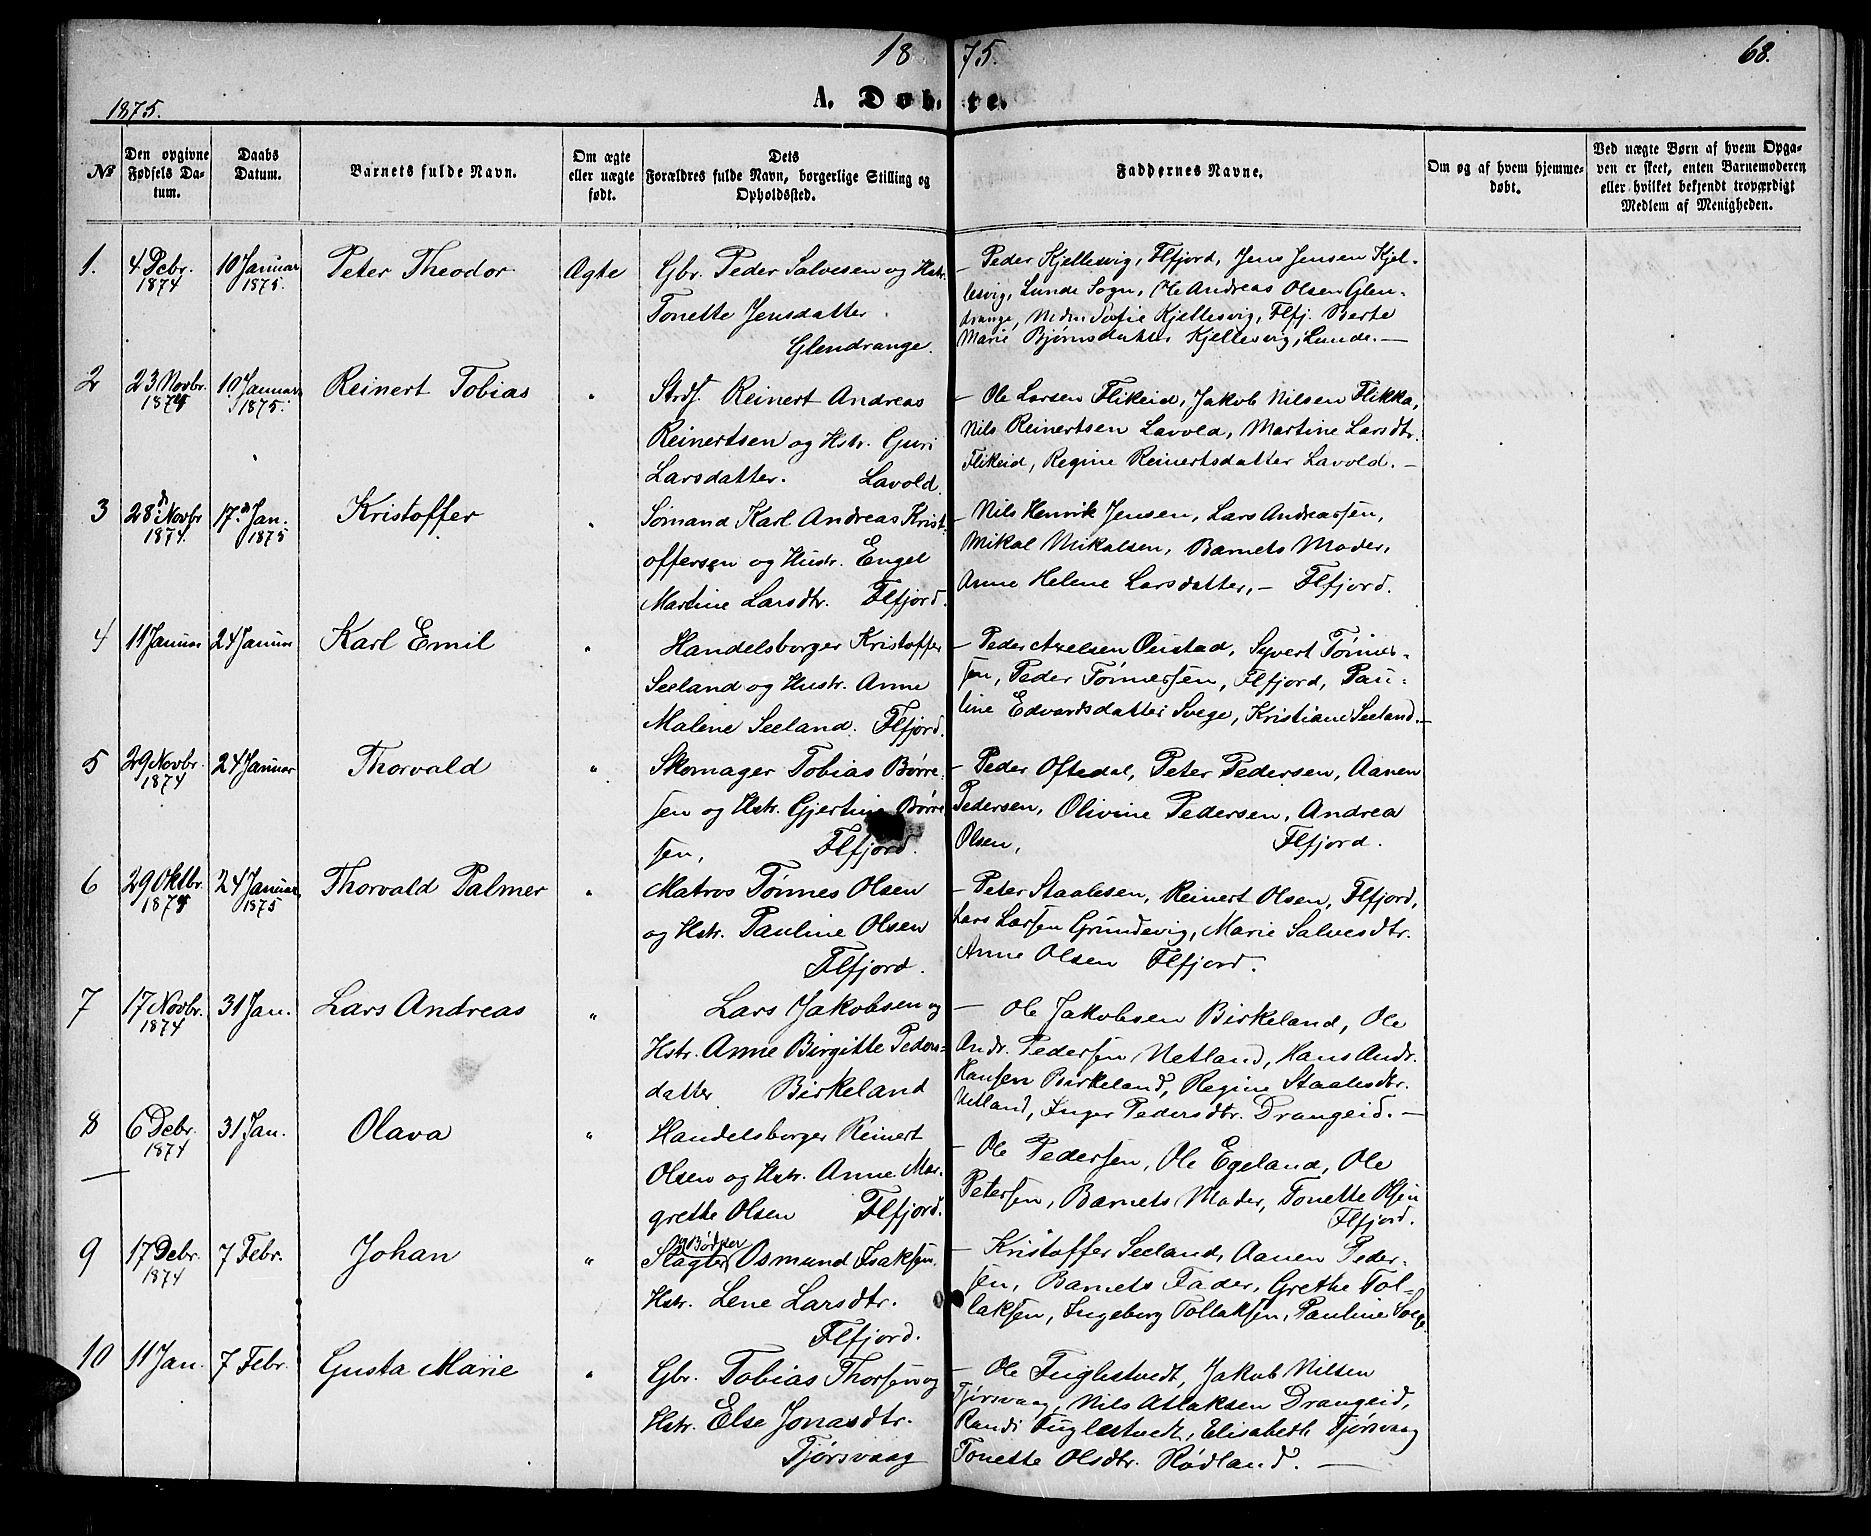 1875. 68.
1875. A. Døbte.
No
Den opgivne Fødsels Datum.
Daabs Datum.
Barnets fulde Navn.
Om ægte eller uægte født.
Dets Forældres fulde Navn, borgerlige Stilling og Opholdssted.
Faddernes Navne.
Om og af hvem hjemmedøbt.
Ved uægte Børn af hvem Opgaven er skeet, enten Barnemoderen eller hvilket bekjendt troværdigt Medlem af Menigheden.
1. 4 Debr. 1874 10 Januar 1875. Peter Theodor Ægte
Gbr. Peder Salvesen og Hstr.
Tonette Jensdatter
Glendrange.
– Peder Kjellesvig, Flfjord, Jens Jensen Kjel-
lesvig, Lunde Sogn, Ole Andreas Olsen Glen-
drange, Sofie Kjellesvig, Flfj. Berte
Marie Bjørnsdatter Kjellesvig, Lunde. –
2 23 Novbr. 1874 10 Januar 1875. Reinert Tobias "
Strds. Reinert Andreas
Reinertsen og Hstr. Guri
Larsdatter. Lavold.
– Ole Larsen Flikeid, Jakob Nilsen Flikka,
Nils Reinertsen Lavold, Martine Larsdtr.
Flikeid, Regine Reinertsdatter Lavold. –
3 28d Novbr 1874. 17d Jan. 1875 Kristoffer "
Sømand Karl Andreas Krist-
offersen og Hustr. Engel
Martine Larsdtr. Flfjord.
– Nils Henrik Jensen, Lars Andreassen,
Mikal Mikalsen, Barnets Moder,
Anne Helene Larsdatter, – Flfjord.
4 11 Januar 24 Januar Karl Emil "
Handelsborger Kristoffer
Seeland og Hustr. Anne
Malene Seeland. Flfjord.
– Peder Axelsen Øustad, Syvert Tønnes-
sen, Peder Tønnessen, Flfjord, Pau-
line Edvardsdatter Svege, Kristiane Seeland. –
5 29 Novbr. 1874 24 Januar Thorvald "
Skomager Tobias Børre-
sen og Hstr. Gjertine Børre
sen, Flfjord.
– Peder Oftedal, Peter Pedersen, Aanen
Pedersen, Olivine Pedersen, Andrea
Olsen, Flfjord.
6 29 Oktbr. 1874 24 Januar 1875 Thorvald Palmer "
Matros Tønnes Olsen
og Hstr. Pauline Olsen
Flfjord.
– Peter Staalesen, Reinert Olsen, Flfjord,
Lars Larsen Grundevig, Marie Salvesdtr.
Anne Olsen Flfjord.
7 17 Novbr. 1874 31 Jan. Lars Andreas "
Lars Jakobsen og
Hstr. Anne Birgitte Peders-
datter Birkeland
– Ole Jakobsen Birkeland, Ole
Andr. Pedersen Netland, Hans Andr.
Hansen Birkeland, Regine Staalesdtr.
Netland, Inger Pedersdtr. Drangeid. –
8 6 Debr. 1874 31 Jan. Olava "
Handelsborger Reinert
Olsen og Hstr. Anne Mar-
grethe Olsen Flfjord.
– Ole Pedersen, Ole Egeland, Ole
Petersen, Barnets Moder, Tonette Olsen
Flfjord.
9 17 Debr. 1874 7 Febr. Johan "
og Bødker
Slagter Osmund Isaksen.
Hstr. Lene Larsdtr.
Flfjord.
– Kristoffer Seeland, Aanen Peder-
sen, Barnets Fader, Grethe Tol-
laksen, Ingeborg Tollaksen, Pauline Svege
10 11 Jan. 7 Febr. Gusta Marie "
Gbr. Tobias Thorsen og
Hstr. Else Jonasdtr.
Tjørsvaag
– Ole Fuglestvedt, Jakob Nilsen
Tjørsvaag, Nils Atlaksen Drangeid,
Randi Fuglestvedt, Elisabeth Tjørsvaag
Tonette Olsdtr. Rødland. –